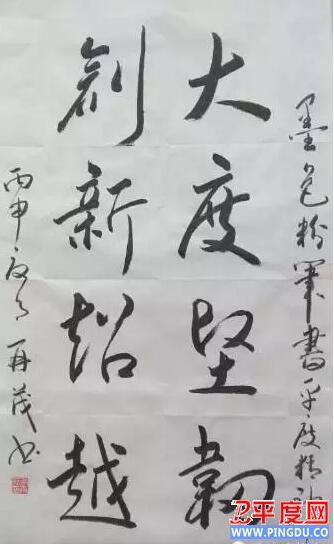 墨色粉笔書平度精神
大度坚韧
創新超越
丙申夏月再茂书
平度网
WWW.PINGDU.COM